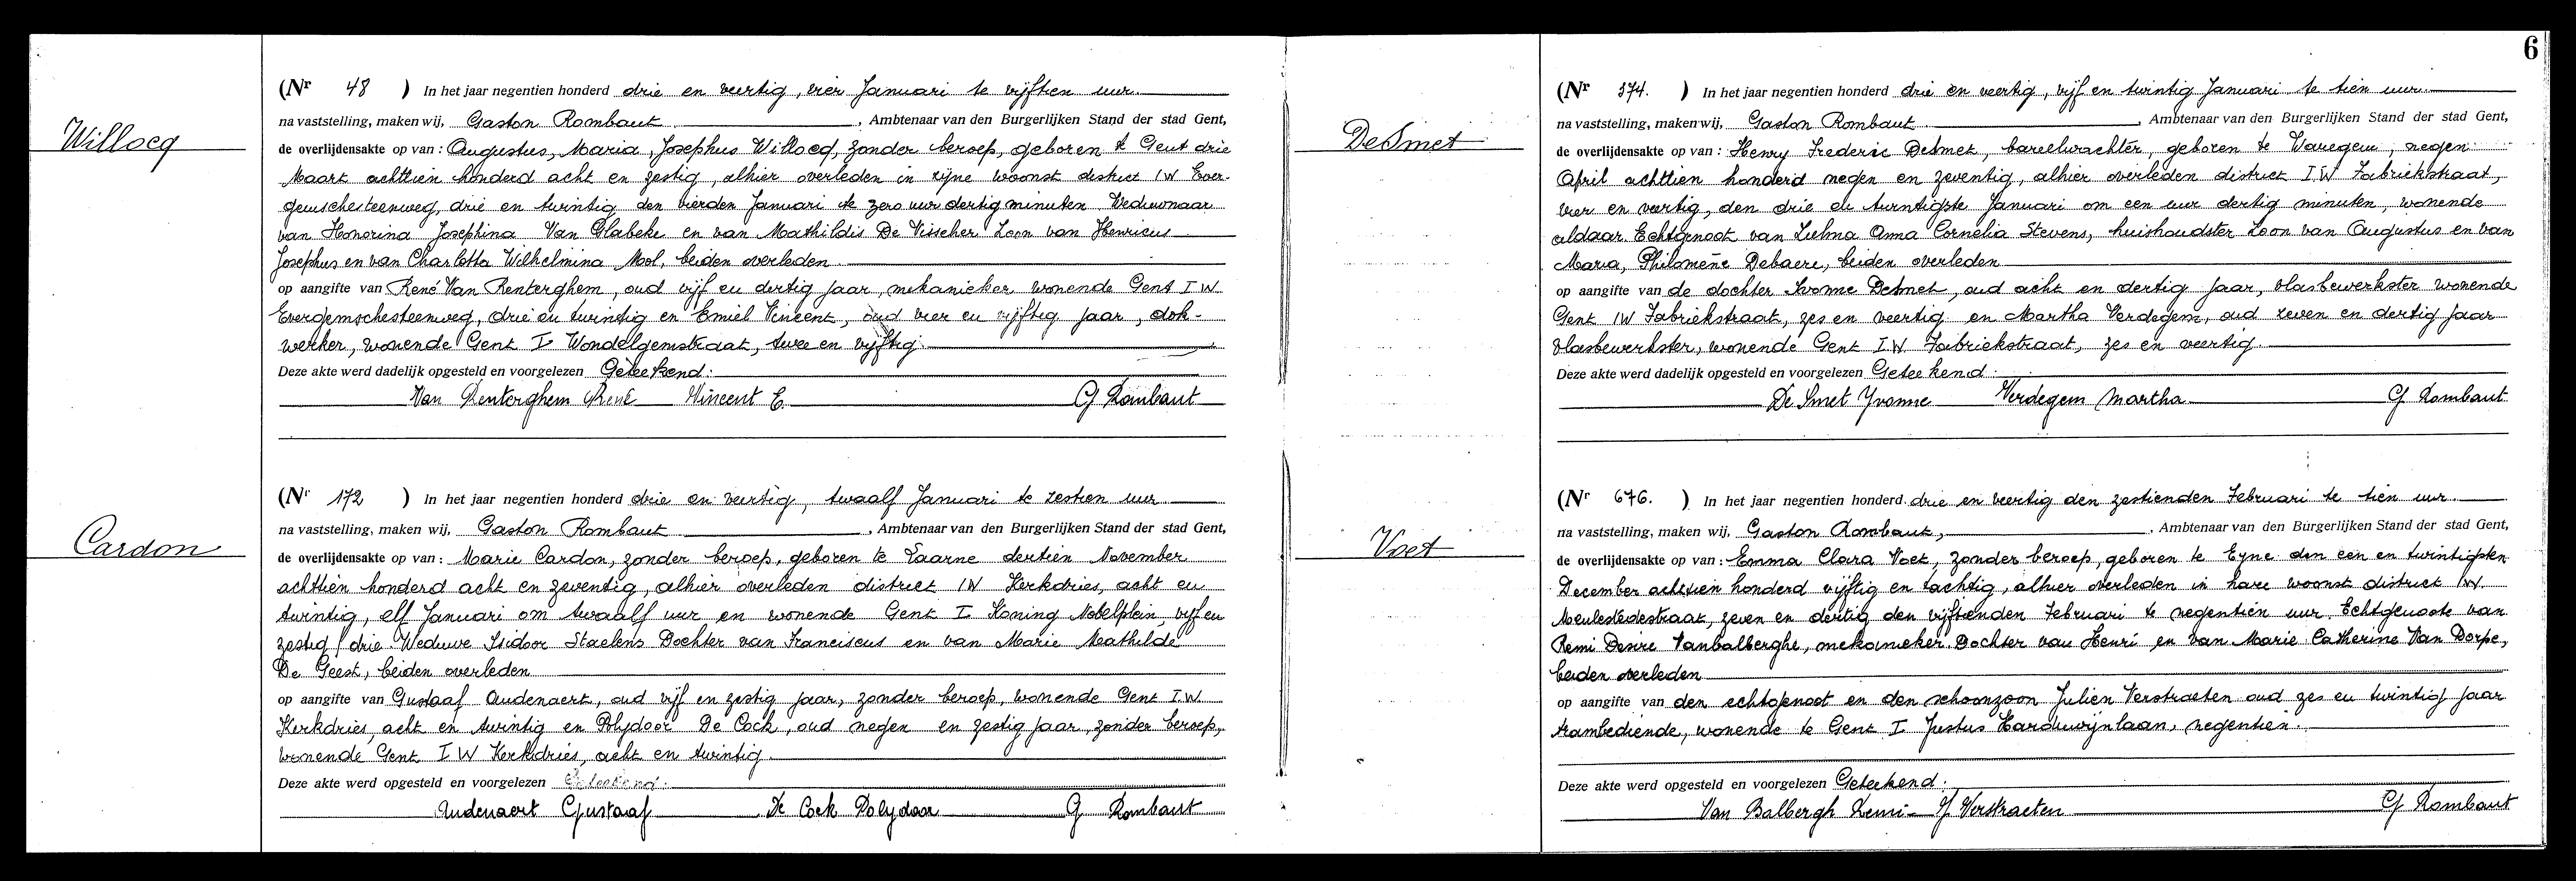 6
Willocq
(Nr 48 ) In het jaar negentien honderd drie en veertig, vier Januari te vijftien uur.
na vaststelling, maken wij, Gaston Rombaut , Ambtenaar van den Burgerlijken Stand der stad Gent,
de overlijdensakte op van : Augustus, Maria, Josephus Willocq, zonder beroep, geboren te Gent drie
Maart achttien honderd acht en zestig, alhier overleden in zijne woonst district IW Ever-
gemschesteenweg, drie en twintig den vierden Januari te zero uur dertig minuten Weduwnaar
van Honorina Josephina Van Glabeke en van Mathildis De Visscher Zoon van Henricus
Josephus en van Charlotta Wilhelmina Mol, beiden overleden
op aangifte van René Van Renterghem, oud vijf en dertig jaar, mekanieker wonende Gent IW
Evergemschesteenweg, drie en twintig en Emiel Vincent, oud vier en vijftig jaar, dok-
werker, wonende Gent I Wondelgemstraat, twee en vijftig.
Deze akte werd dadelijk opgesteld en voorgelezen Geteekend:
Van Renterghem René Vincent E. G Rombaut
Cardon
(Nr 172 ) In het jaar negentien honderd drie en veertig, twaalf Januari te zestien uur
na vaststelling, maken wij, Gaston Rombaut , Ambtenaar van den Burgerlijken Stand der stad Gent,
de overlijdensakte op van : Marie Cardon, zonder beroep, geboren te Laarne dertien November
achttien honderd acht en zeventig, alhier overleden district IW Kerkdries, acht en
twintig, elf Januari om twaalf uur en wonende Gent I Koning Nobelplein, vijf en
zestig / drie Weduwe Isidoor Staelens Dochter van Franciscus en van Marie Mathilde
De Geest, beiden overleden
op aangifte van Gustaaf Audenaert, oud vijf en zestig jaar, zonder beroep, wonende Gent I.W.
Kerkdries, acht en twintig en Polydoor De Cock, oud negen en zestig jaar, zonder beroep,
wonende Gent I W Kerkdries, acht en twintig.
Deze akte werd opgesteld en voorgelezen Geteekend:
Audenaert Gustaaf De Cock Polydoor G Rombaut
De Smet
(Nr 374. ) In het jaar negentien honderd drie en veertig, vijf en twintig Januari te tien uur.
na vaststelling, maken wij, Gaston Rombaut , Ambtenaar van den Burgerlijken Stand der stad Gent,
de overlijdensakte op van : Henry Frederic DeSmet, bareelwachter, geboren te Waregem, negen
April achttien honderd negen en zeventig, alhier overleden district I W Fabriekstraat,
vier en veertig, den drie en twintigste Januari om een uur dertig minuten, wonende
aldaar Echtgenoot van Zulma Anna Cornelia Stevens, huishoudster Zoon van Augustus en van
Maria, Philomène Debaere, beiden overleden
op aangifte van de dochter Ivonne DeSmet, oud acht en dertig jaar, vlasbewerkster wonende
Gent IW Fabriekstraat, zes en veertig en Martha Verdegem, oud zeven en dertig jaar
vlasbewerkster, wonende Gent I.W. Fabriekstraat, zes en veertig.
Deze akte werd dadelijk opgesteld en voorgelezen Geteekend:
De Smet Yvonne Verdegem Martha G Rombaut
Voet
(Nr 676. ) In het jaar negentien honderd drie en veertig den zestienden Februari te tien uur.
na vaststelling, maken wij, Gaston Rombaut, , Ambtenaar van den Burgerlijken Stand der stad Gent,
de overlijdensakte op van : Emma Clara Voet, zonder beroep, geboren te Eyne den een en twintigsten
December achttien honderd vijftig en tachtig, alhier overleden in hare woonst district IW
Meulestedestraat, zeven en dertig den vijftienden Februari te negentien uur. Echtgenoote van
Remi Desire Vanbalberghe, mekanieker. Dochter van Henri en van Marie Catherine Van Dorpe,
beiden overleden
op aangifte van den echtgenoot en den schoonzoon Julien Verstraeten oud zes en twintig jaar
trambediende, wonende te Gent I Justus Harduwijnlaan, negentien
Deze akte werd opgesteld en voorgelezen Geteekend:
Van Balbergh Remi - J Verstraeten G Rombaut